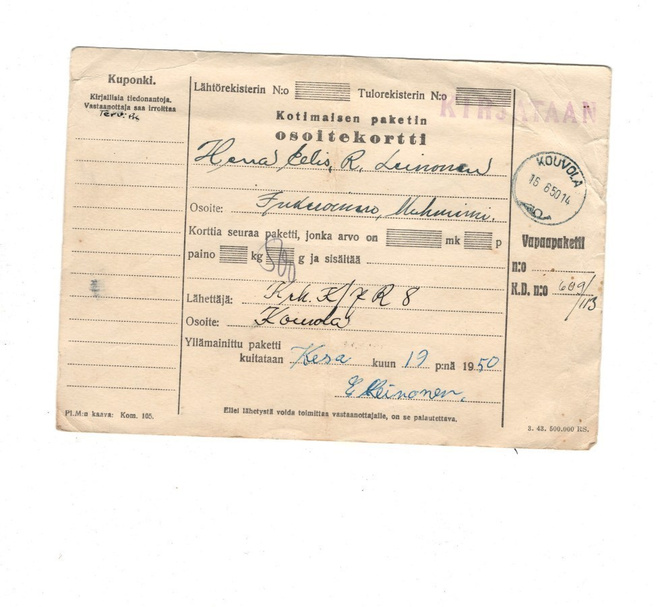 Kuponki.
Kirjallisia tiedonantoja.
Vastaanottaja saa irroittaa
Lähtörekisterin N:o Tulorekisterin N:o
KIRJATAAN
Kotimaisen paketin
osoitekortti
Herra Eelis, R. Leinonen
Osoite:
Korttia seuraa paketti, jonka arvo on mk p
paino kg 500 g ja sisältää
Lähettäjä: K/7 R 8
Osoite: Kouvola
Ylämainittu paketti
kuitataan Kesä kuun 19 p:nä 1950
E Leinonen.
Ellei lähetystä voida toimittaa vastaanottajalle, on se palautettava.
Pl.M:n kaava: Kom. 105.
KOUVOLA
16 6 50 14
Vapaapaketti
n:o
K.D. n:o 689/113
3. 43. 500.000 RS.